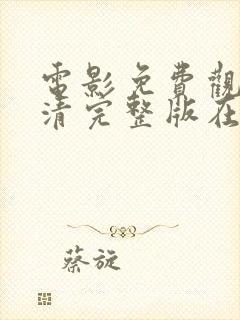 電影免費觀
清完整版在
蔡旋